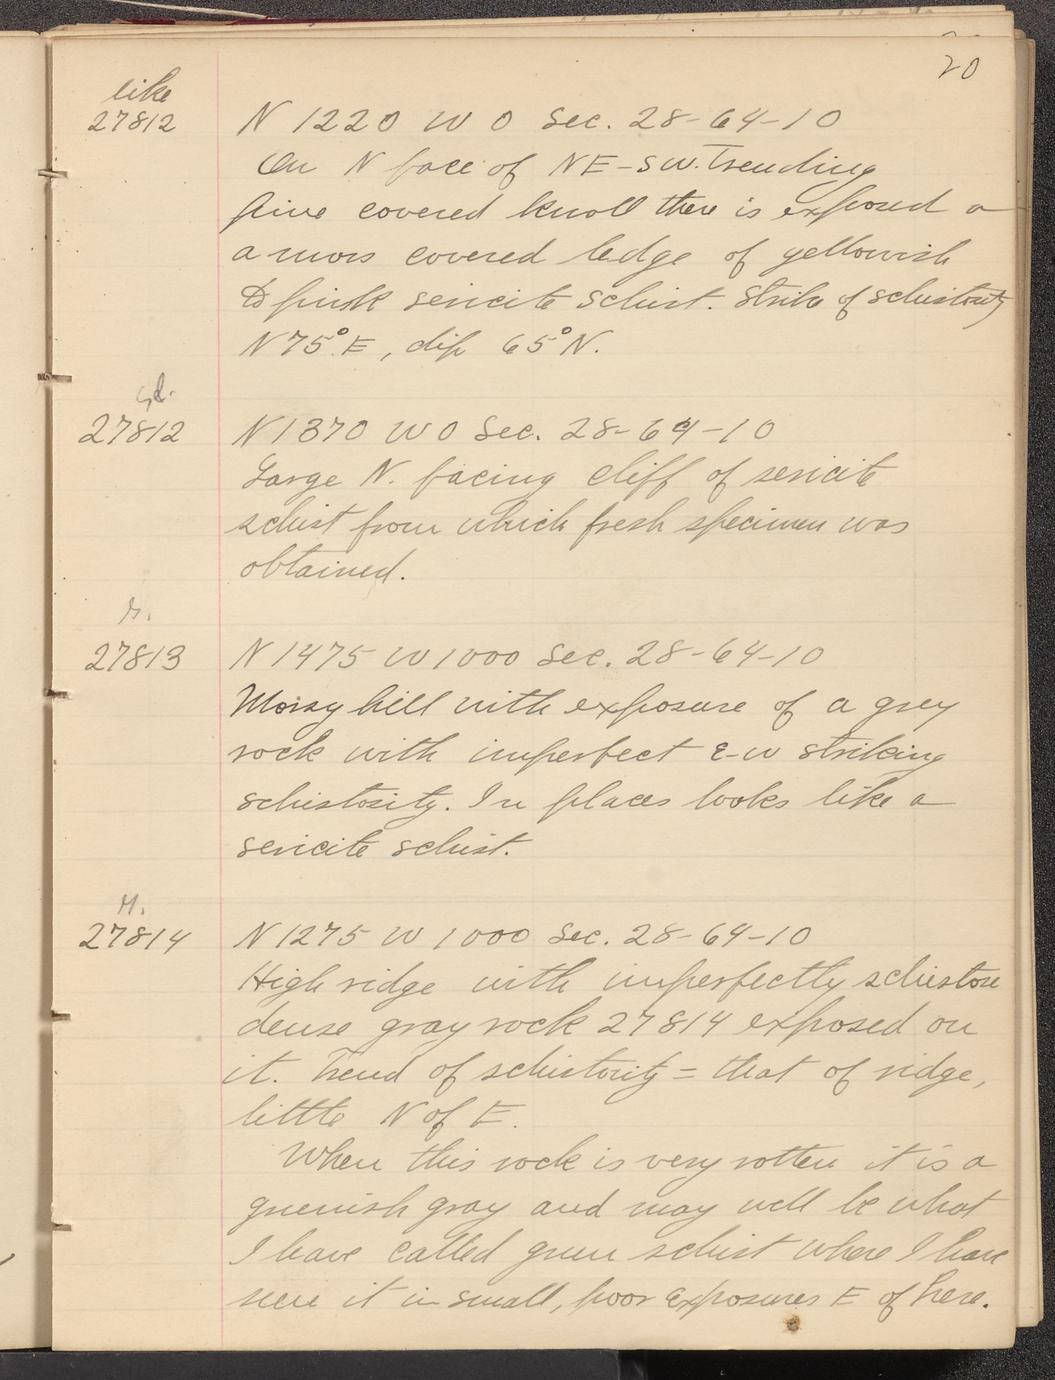 20
like
27812 N 1220 W 0 Sec. 28-64-10
On N face of NE-SW. Trending
pine covered knoll there is exposed a
a moss covered ledge of yellowish
to pink sericite schist. Strike of schistosity
N 75° E, dip 65° N.
27812 N 1370 W 0 Sec. 28-64-10
Large N. facing cliff of sericite
schist from which fresh specimen was
obtained.
27813 N 1475 W 1000 Sec. 28-64-10
Mossy hill with exposure of a grey
rock with imperfect E-W striking
schistosity. In places looks like a
sericite schist.
H.
27814 N 1275 W 1000 Sec. 28-64-10
High ridge with imperfectly schistose
dense gray rock 27814 exposed on
it. Trend of schistosity = that of ridge,
little N of E.
When this rock is very rotten it is a
greenish gray and may well be what
I have called green schist where I have
seen it in small, poor exposures E of here.